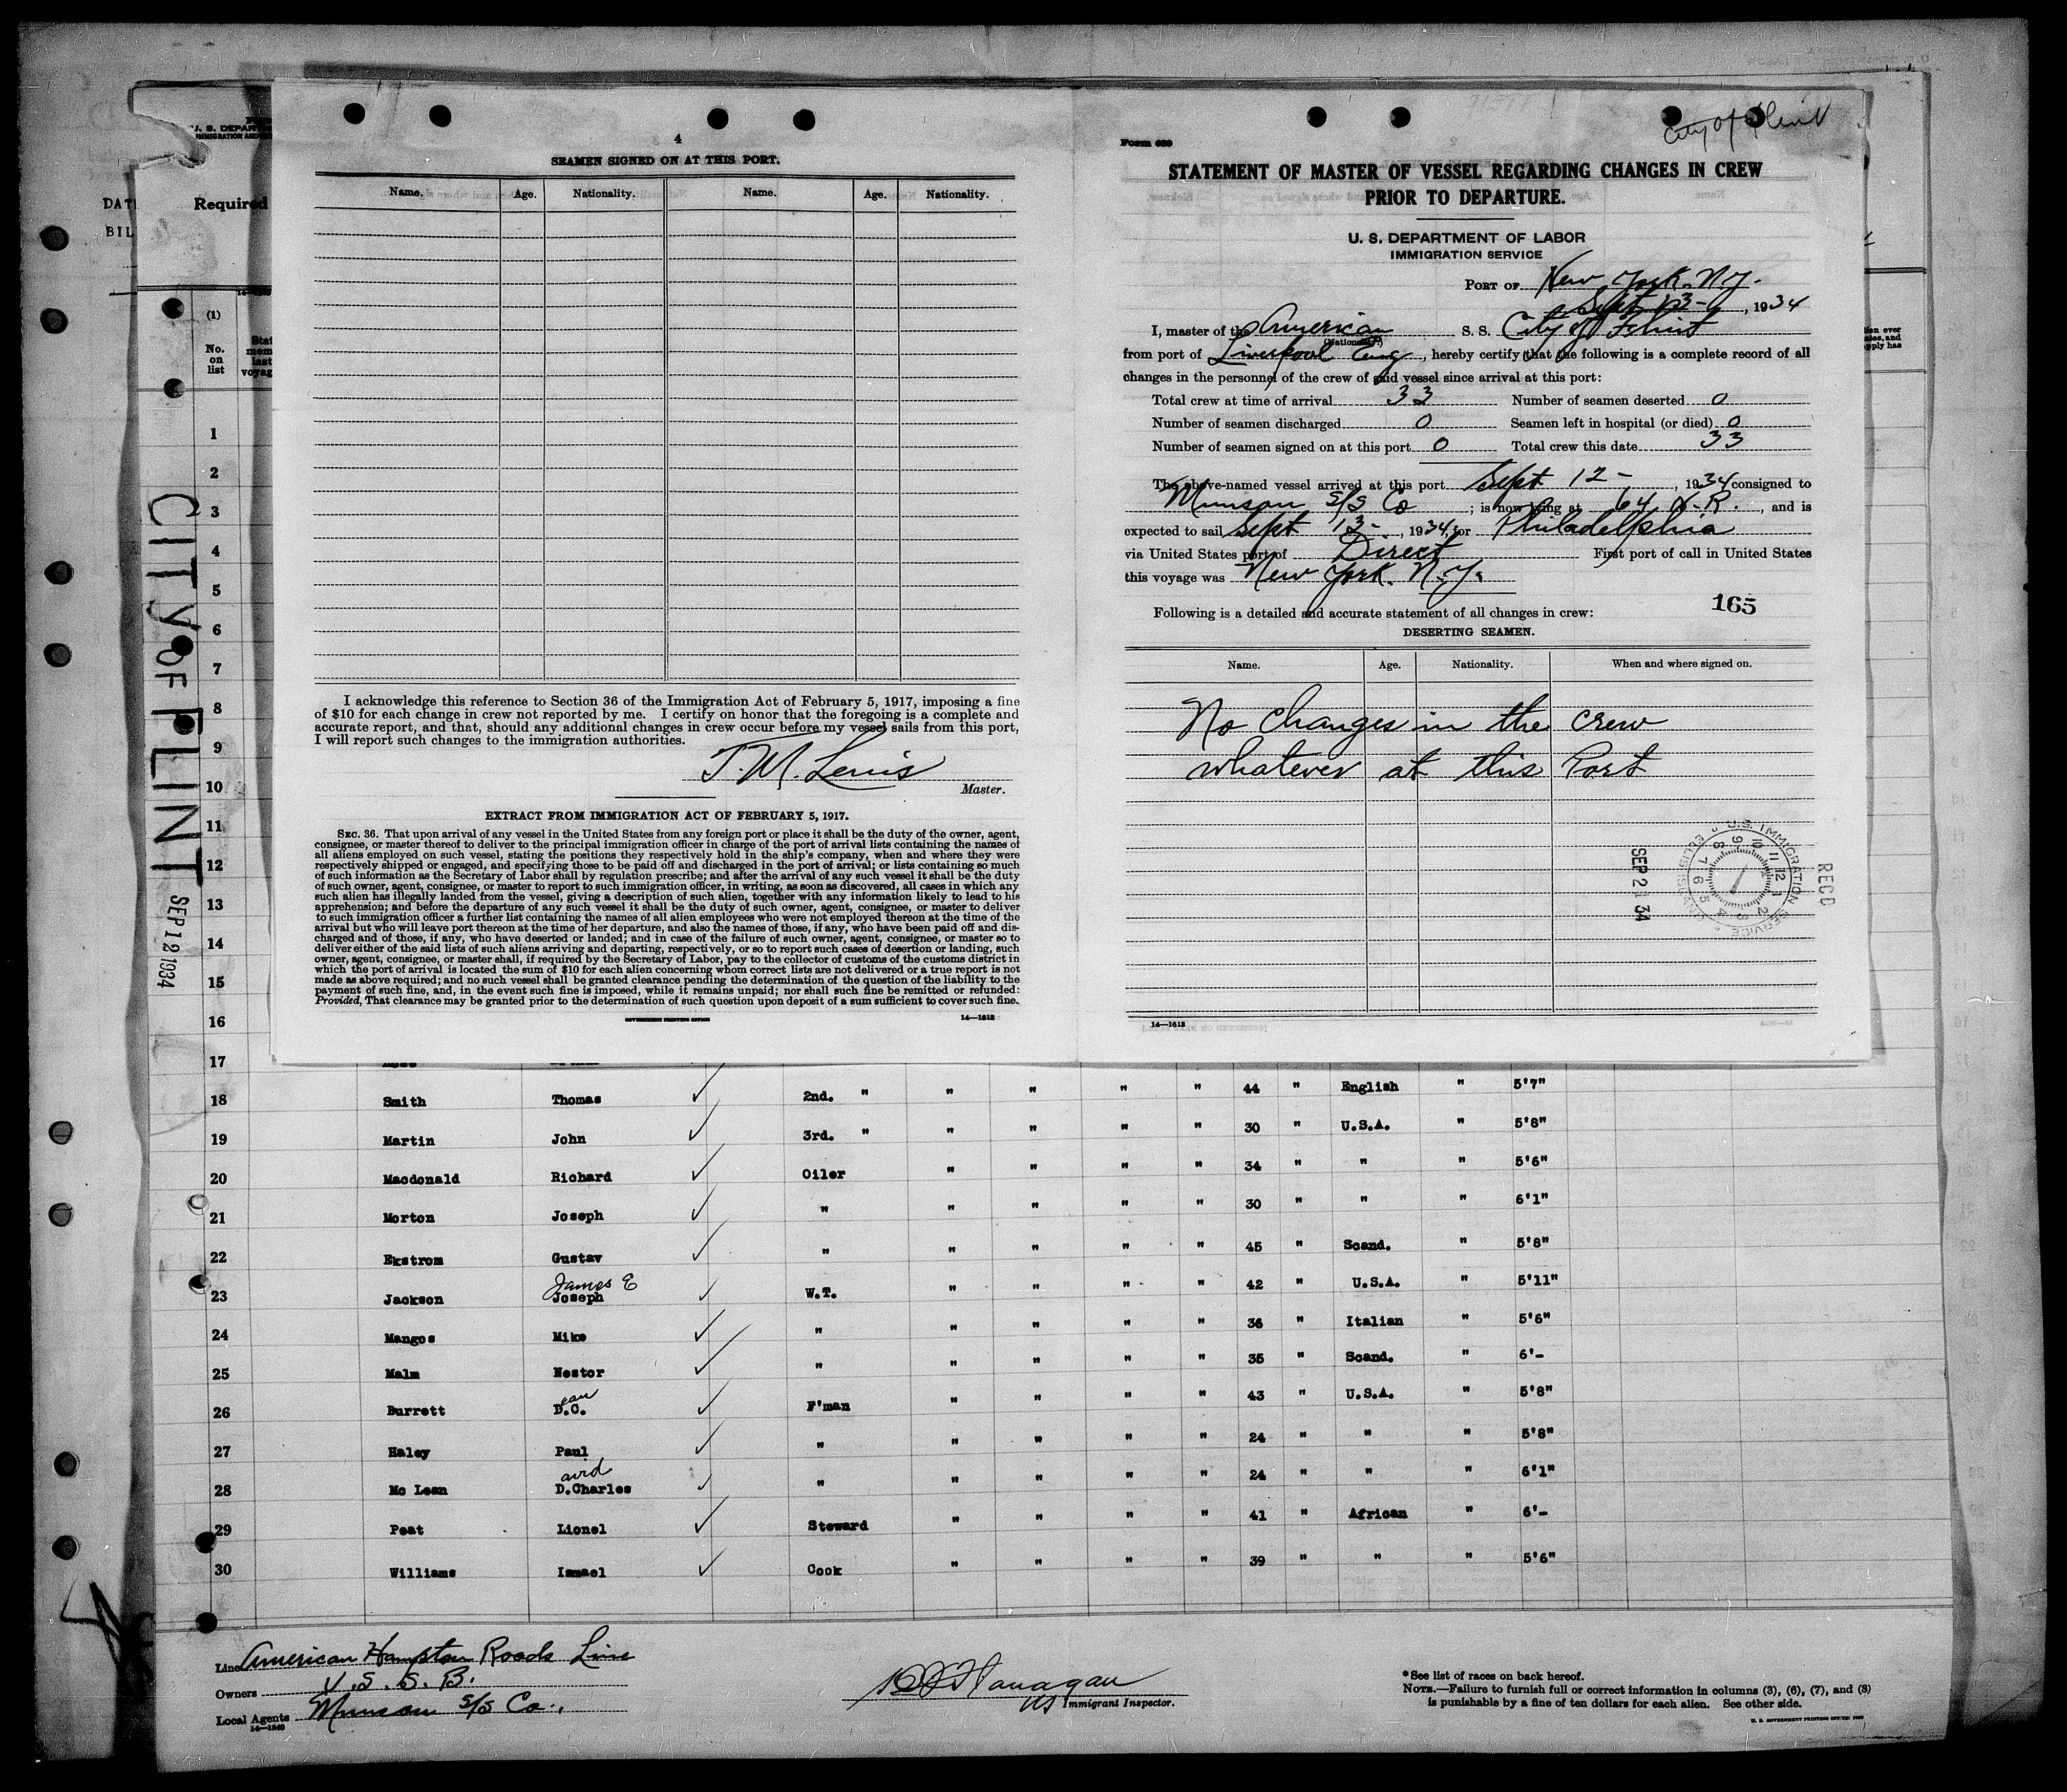 4
SEAMEN SIGNED ON AT THIS PORT.
Name. Age. Nationality. Name. Age. Nationality.
I acknowledge this reference to Section 36 of the Immigration Act of February 5, 1917, imposing a fine
of $10 for each change in crew not reported by me. I certify on honor that the foregoing is a complete and
accurate report, and that, should any additional changes in crew occur before my vessel sails from this port,
I will report such changes to the immigration authorities.
J. M. Lewis
Master.
EXTRACT FROM IMMIGRATION ACT OF FEBRUARY 5, 1917.
SEC. 36. That upon arrival of any vessel in the United States from any foreign port or place it shall be the duty of the owner, agent,
consignee, or master thereof to deliver to the principal immigration officer in charge of the port of arrival lists containing the names of
all aliens employed on such vessel, stating the positions they respectively hold in the ship's company, when and where they were
respectively shipped or engaged, and specifying those to be paid off and discharged in the port of arrival; or lists containing so much
of such information as the Secretary of Labor shall by regulation prescribe; and after the arrival of any such vessel it shall be the duty
of such owner, agent, consignee, or master to report to such immigration officer, in writing, as soon as discovered, all cases in which any
such alien has illegally landed from the vessel, giving a description of such alien, together with any information likely to lead to his
apprehension; and before the departure of any such vessel it shall be the duty of such owner, agent, consignee, or master to deliver
to such immigration officer a further list containing the names of all alien employees who were not employed thereon at the time of the
arrival but who will leave port thereon at the time of her departure, and also the names of those, if any, who have been paid off and dis-
charged and of those, if any, who have deserted or landed; and in case of the failure of such owner, agent, consignee, or master so to
deliver either of the said lists of such aliens arriving and departing, respectively, or so to report such cases of desertion or landing, such
owner, agent, consignee, or master shall, if required by the Secretary of Labor, pay to the collector of customs of the customs district in
which the port of arrival is located the sum of $10 for each alien concerning whom correct lists are not delivered or a true report is not
made as above required; and no such vessel shall be granted clearance pending the determination of the question of the liability to the
payment of such fine, and, in the event such fine is imposed, while it remains unpaid; nor shall such fine be remitted or refunded:
Provided, That clearance may be granted prior to the determination of such question upon deposit of a sum sufficient to cover such fine.
GOVERNMENT PRINTING OFFICE 14—1613
City of Flint
Form 689
STATEMENT OF MASTER OF VESSEL REGARDING CHANGES IN CREW
PRIOR TO DEPARTURE.
U. S. DEPARTMENT OF LABOR
IMMIGRATION SERVICE
PORT OF New York. N.Y.
Sept 13-, 1934
I, master of the American S. S. City of Flint
(Nationality)
from port of Liverpool Eng, hereby certify that the following is a complete record of all
changes in the personnel of the crew of said vessel since arrival at this port:
Total crew at time of arrival 33 Number of seamen deserted 0
Number of seamen discharged 0 Seamen left in hospital (or died) 0
Number of seamen signed on at this port 0 Total crew this date 33
The above-named vessel arrived at this port Sept 12 -, 1934 consigned to
Munson S/S Co; is now lying at 64 N.R., and is
expected to sail Sept 13-, 1934, for Philadelphia
via United States port of Direct First port of call in United States
this voyage was New York. N.Y.
165
Following is a detailed and accurate statement of all changes in crew:
DESERTING SEAMEN.
Name. Age. Nationality. When and where signed on.
No Changes in the crew
whatever at this Port
REC'D
U.S. IMMIGRATION SERVICE
SEP 21 34
14—1613
U. S. DEPART
Required
DAT
BIL
(1)
No.
on
list
CITY OF FLINT
SEP 12 1934
1
2
3
4
5
6
7
8
9
10
11
12
13
14
15
16
17
18 Smith Thomas 2nd. " " " " " 44 " English " 5'7"
19 Martin John 3rd. " " " " " 30 " U.S.A. " 5'8"
20 Macdonald Richard Oiler " " " " 34 " " " 5'6"
21 Morton Joseph " " " " " 30 " " " 6'1"
22 Ekstrom Gustav " " " " " 45 " Scand. " 5'8"
James E
23 Jackson Joseph W.T. " " " " 42 " U.S.A. " 5'11"
24 Mangos Mike " " " " " 36 " Italian " 5'6"
25 Malm Nestor " " " " " 35 " Scand. " 6'-
ean
26 Burrett D.C. F'man " " " " 43 " U.S.A. " 5'8"
27 Haley Paul " " " " " 24 " " " 5'8"
avid
28 Mc Lean D.Charles " " " " " 24 " " " 6'1"
29 Peat Lionel Steward " " " " 41 " African " 6'-
30 Williams Ismael Cook " " " " 39 " " " 5'6"
Line American Hampton Roads Line
Owners U.S.S.B.
Local Agents Munson S/S Co.,
14—1240
Flanagan
US Immigrant Inspector.
* See list of races on back hereof.
NOTE.—Failure to furnish full or correct information in columns (3), (6), (7), and (8)
is punishable by a fine of ten dollars for each alien. See other side.
U. S. GOVERNMENT PRINTING OFFICE